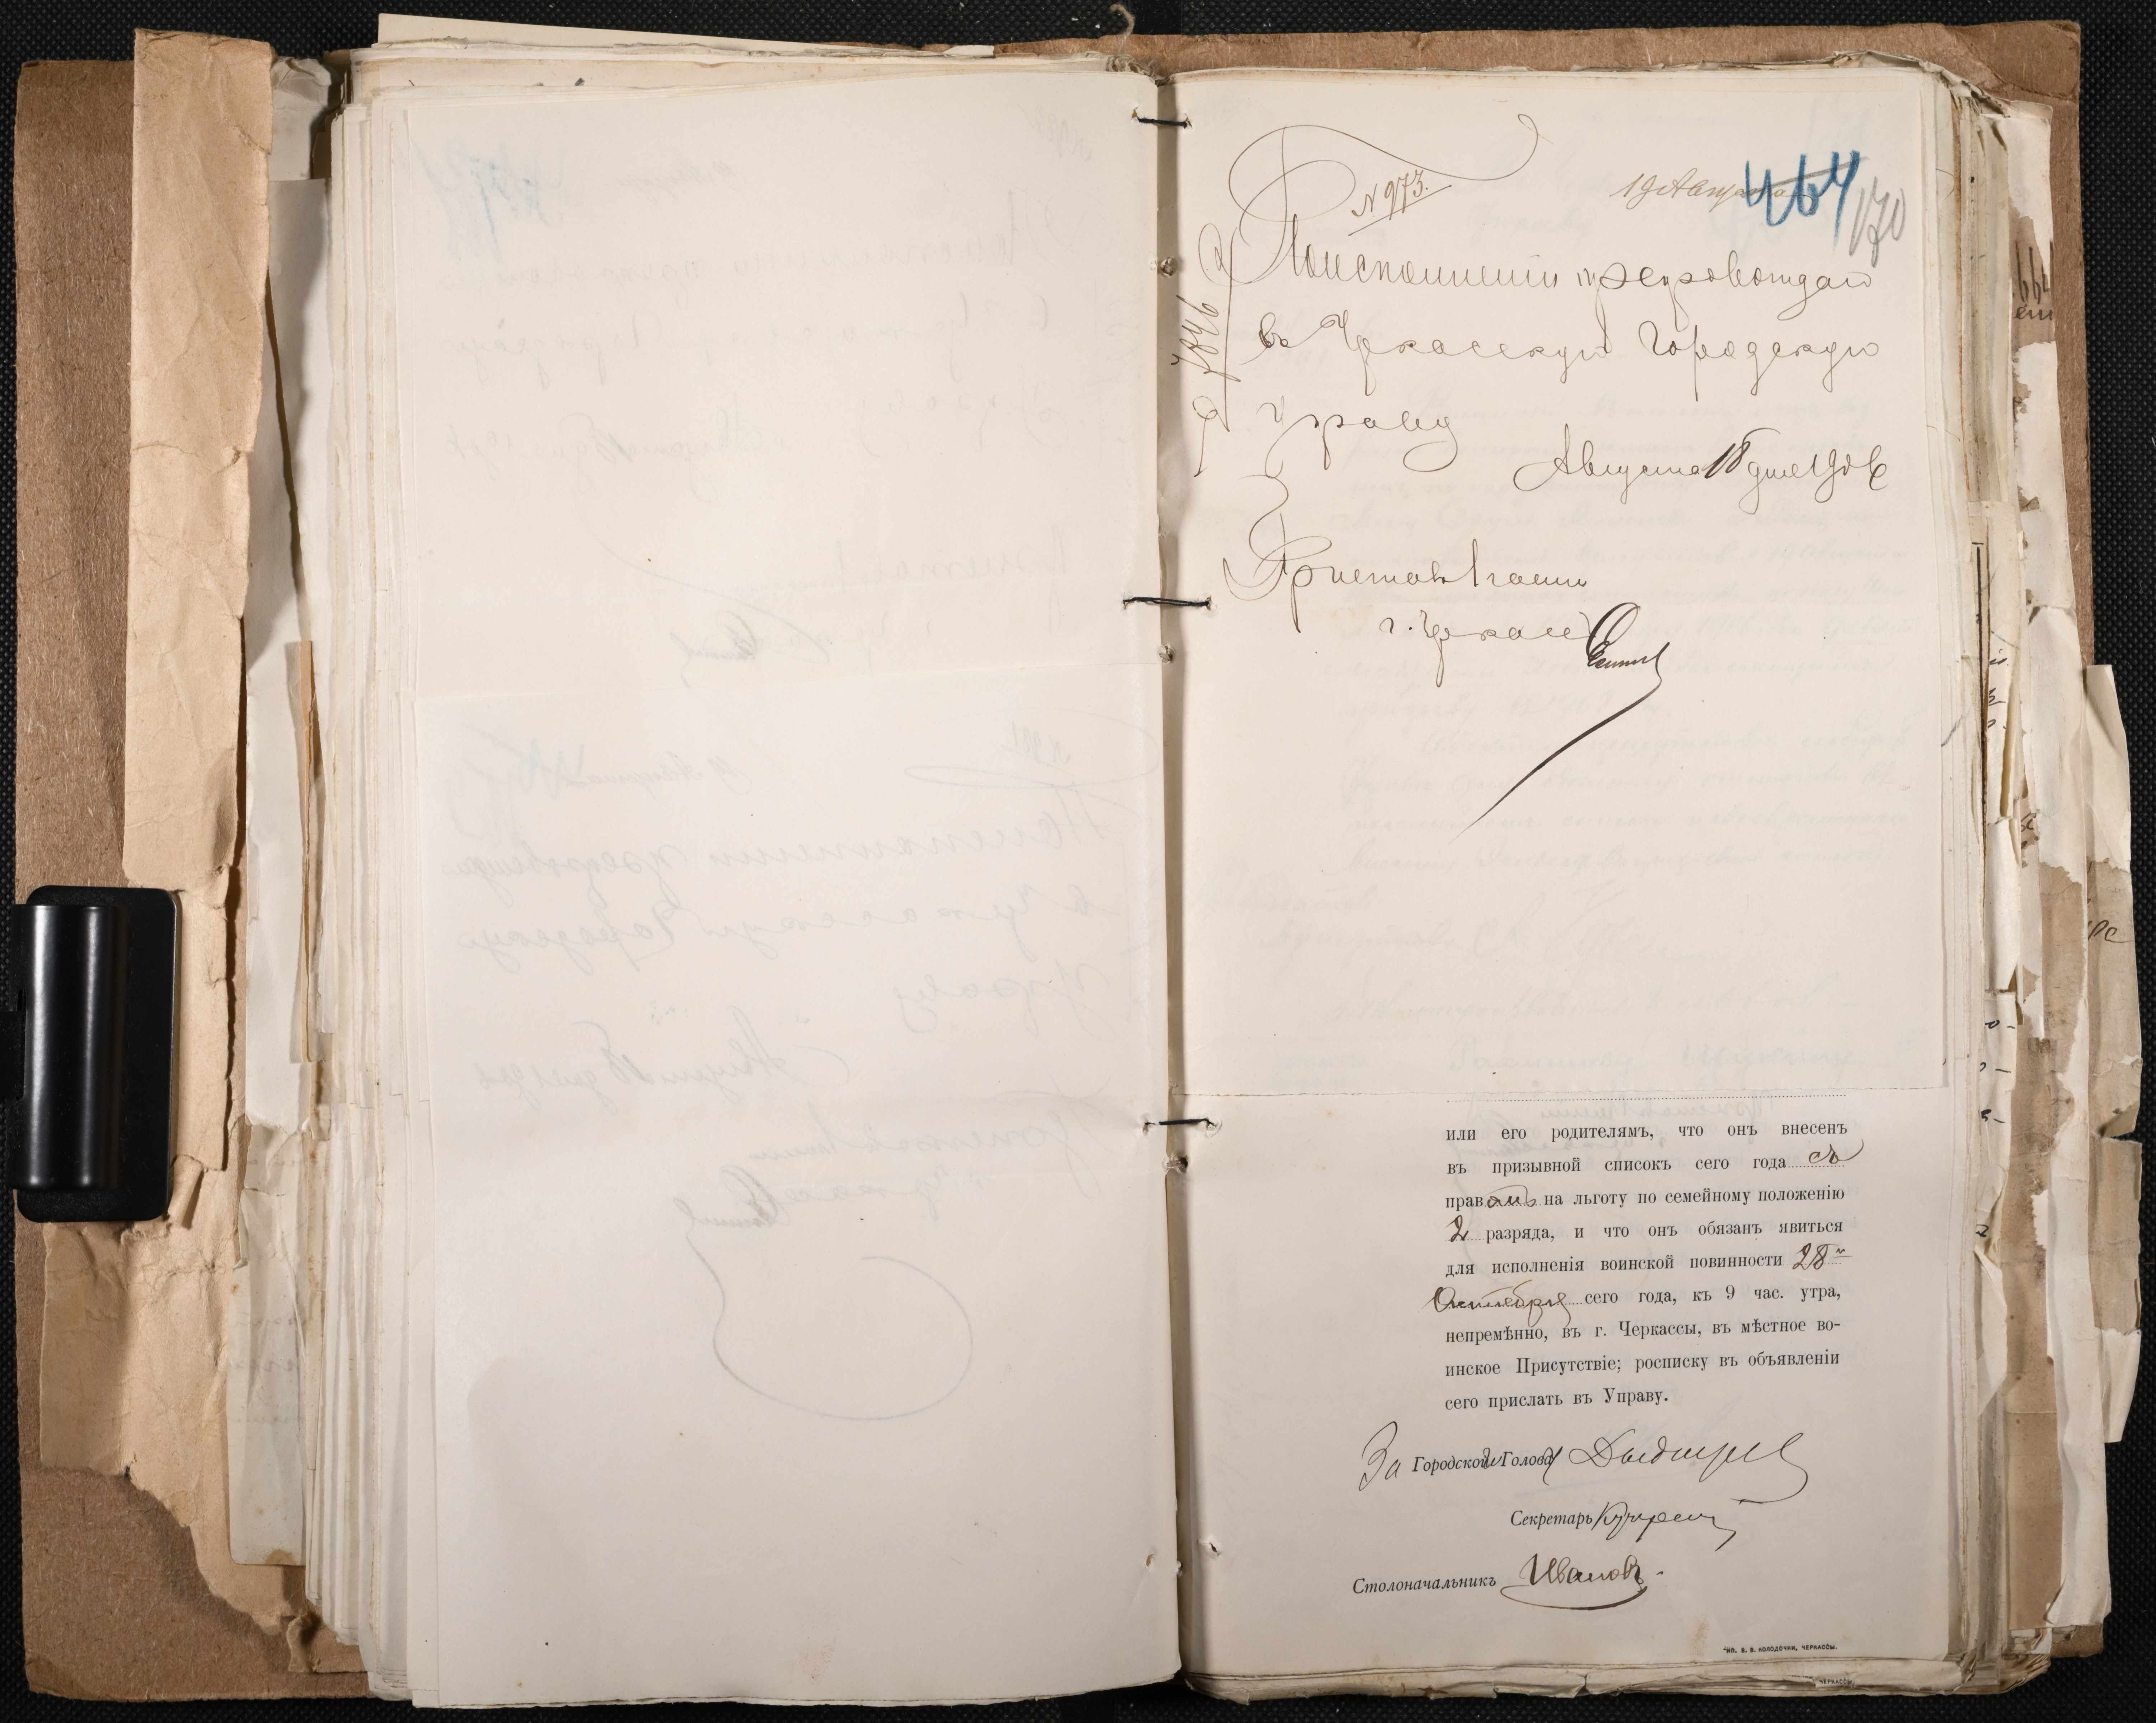 N 973.
19 Августа
464
170
7846
По исполнении препровождаю
въ Черкасскую Городскую
Управу
Августа 18 дня 190
Приставъ 1 части
г. Черкасс
или его родителямъ, что онъ внесенъ
въ призывной списокъ сего года съ
правомъ на льготу по семейному положенію
2 разряда, и что онъ обязанъ явиться
для исполненія воинской повинности 28
Октября сего года, къ 9 час. утра,
непремѣнно, въ г. Черкассы, въ мѣстное во-
инское Присутствіе; росписку въ объявленіи
сего прислать въ Управу.
За Городского Голову
Секретарь
Столоначальникъ Ивановъ.
ТИП. В. В. КОЛОДОЧКИ, ЧЕРКАССЫ.
ЧЕРКАССЫ